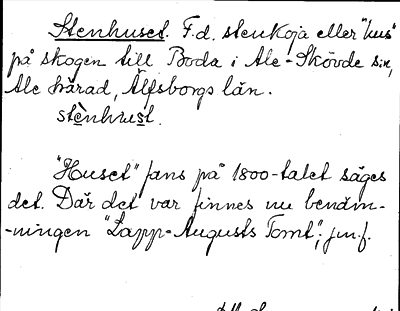 Stenhuset. F.d. stenkoja eller "hus"
på skogen till Boda i Ale-Skövde sn,
Ale härad, Älfsborgs län.
stènhust.
"Huset" fans på 1800-talet säges
det. Där det var finnes nu benäm-
-ningen "Lapp-Augusts Tomt"; jm.f.